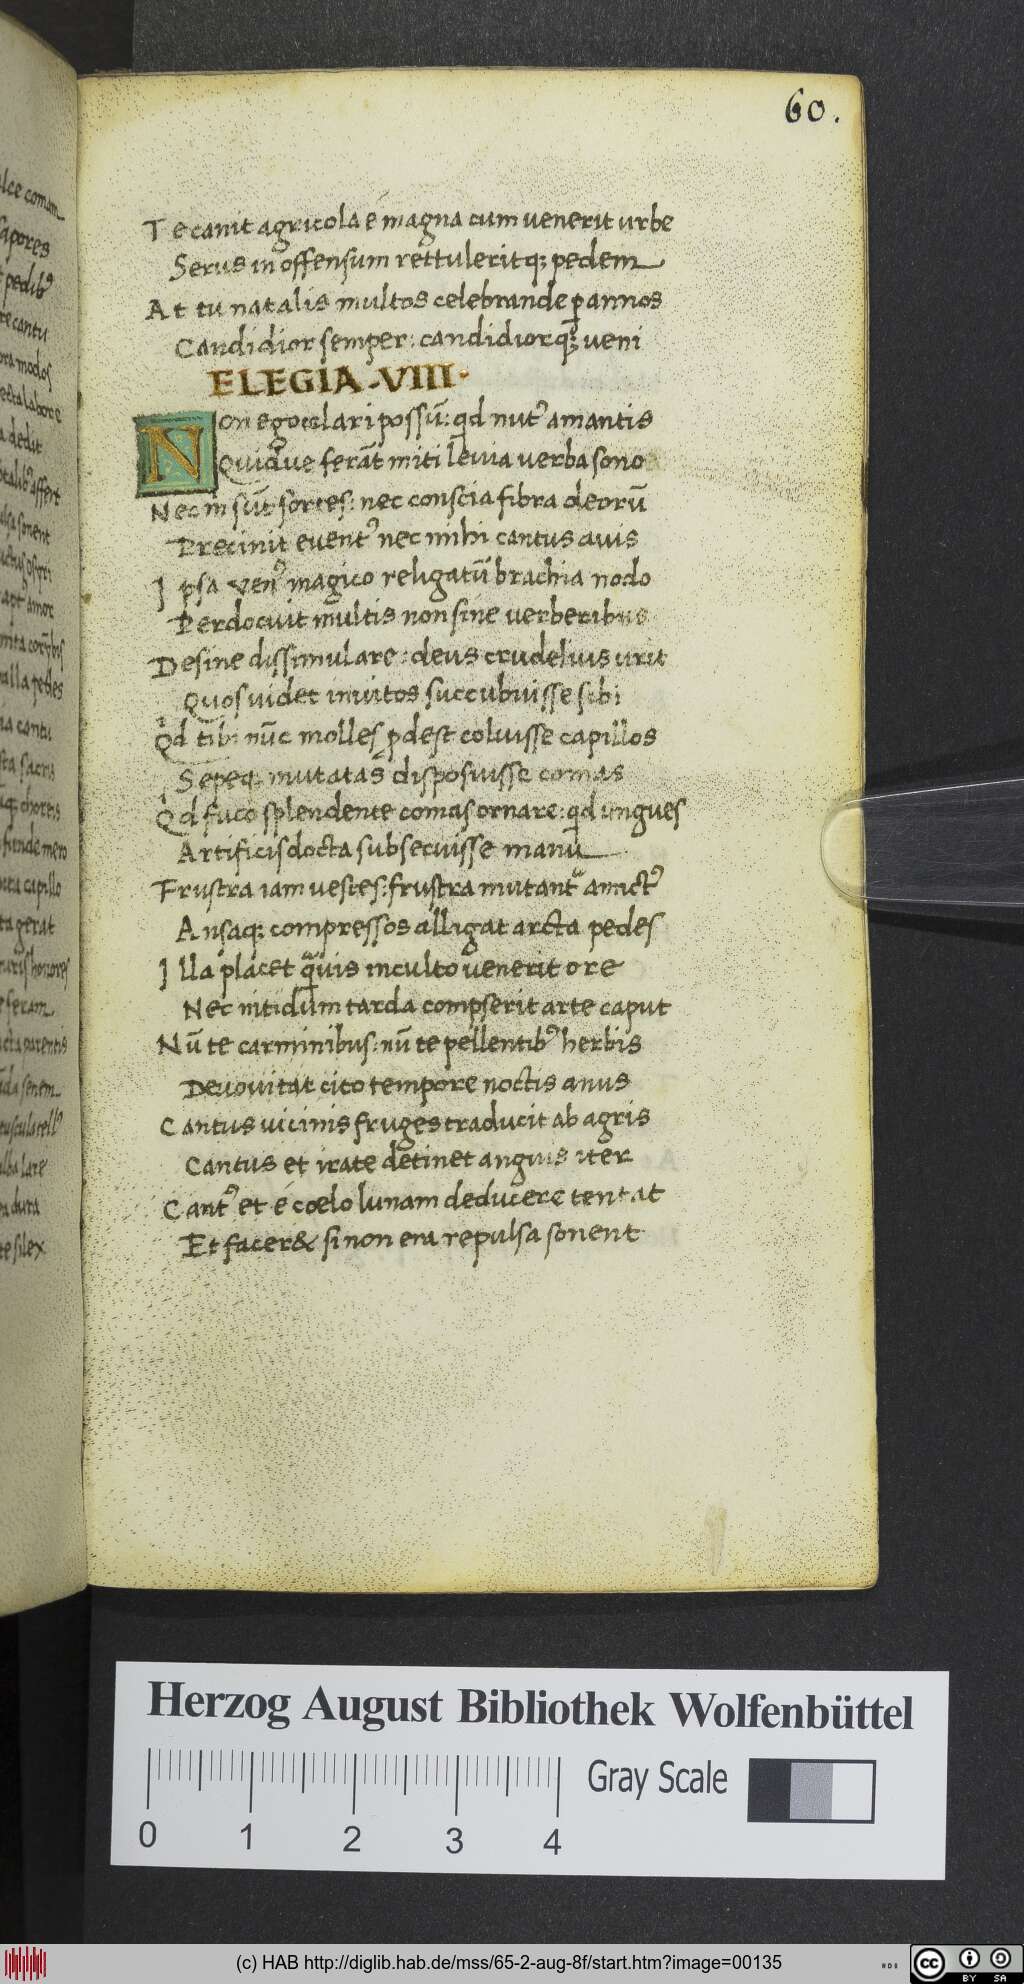 60.
Te canit agricola é magna cum venerit urbe
Serus inoffensum rettuleritq; pedem
At tu natalis multos celebrande ꝑ annos
Candidior semper: candidiorq; veni
ELEGIA·VIII·
Non ego cęlari possū: qd nutꝰ amantis
Quidve ferāt miti levia verba sono
Nec m sūt sortes: nec conscia fibra deorū
Precinit eventꝰ nec mihi cantus avis
Ipsa venꝰ magico religatū brachia nodo
Perdocuit multis non sine verberibus
Desine dissimulare: deus crudeliuis urit
Quos uidet inuitos succubuisse sibi
Qd tibi nūc molles ꝓdest coluisse capillos
Sepeq; mutatas disposuisse comas
Qd fuco splendente comas ornare: qd ungues
Artificis docta subsecuisse manu
Frustra iam uestes: frustra mutant amictꝰ
Ansaq; compressos alligat arcta pedes
Illa placet quis inculto venerit ore
Nec nitidum tarda compserit arte caput
Nū te carminibus: nū te pellentibꝰ herbis
Deuouitat cito tempore noctis anus
Cantus vicinis fruges traducit ab agris
Cantus et irate detinet anguis iter
Cantꝰ et é cœlo lunam deducere tentat
Et facer& si non era repulsa sonent
Herzog August Bibliothek Wolfenbüttel
Gray Scale
0 1 2 3 4
(c) HAB http://diglib.hab.de/mss/65-2-aug-8f/start.htm?image=00135
cc BY SA